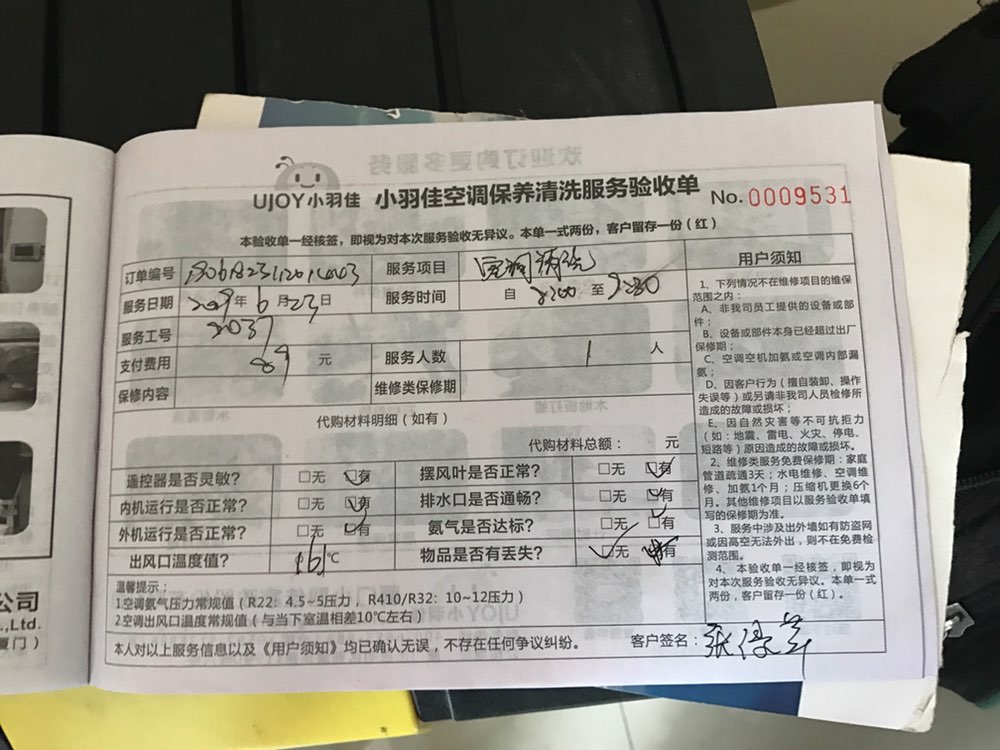 欢迎订购更多服务
UJOY小羽佳 小羽佳空调保养清洗服务验收单 No.0009531
本验收单一经核签，即视为对本次服务验收无异议。本单一式两份，客户留存一份（红）
订单编号 服务项目 空调清洗
服务日期 年 6 月 23 日 服务时间 自 至
服务工号 2037
支付费用 89 元 服务人数 1 人
保修内容 维修类保修期
代购材料明细（如有）
代购材料总额： 元
遥控器是否灵敏？ □无 □有 摆风叶是否正常？ □无 □有
内机运行是否正常？ □无 □有 排水口是否通畅？ □无 □有
外机运行是否正常？ □无 □有 氨气是否达标？ □无 □有
出风口温度值？ 16 ℃ 物品是否有丢失？ 无 有
温馨提示：
1.空调氨气压力常规值（R22：4.5~5压力，R410/R32：10~12压力）
2.空调出风口温度常规值（与当下室温相差10℃左右）
本人对以上服务信息以及《用户须知》均已确认无误，不存在任何争议纠纷。 客户签名：
用户须知
1、下列情况不在维修项目的维保
范围之内：
A、非我司员工提供的设备或部
件；
B、设备或部件本身已经超过出厂
保修期；
C、空调空机加氨或空调内部漏
氨；
D、因客户行为（擅自装卸、操作
失误等）或另请非我司人员检修所
造成的故障或损坏；
E、因自然灾害等不可抗拒力
（如：地震、雷电、火灾、停电、
短路等）原因造成的故障或损坏。
2、维修类服务免费保修期：家庭
管道疏通3天；水电维修、空调维
修、加氨1个月；压缩机更换6个
月。其他维修项目以服务验收单填
写的保修期为准。
3、服务中涉及出外墙如有防盗网
或因高空无法外出，则不在免费检
测范围。
4、本验收单一经核签，即视为
对本次服务验收无异议。本单一式
两份，客户留存一份（红）。
公司
.,Ltd.
厦门）